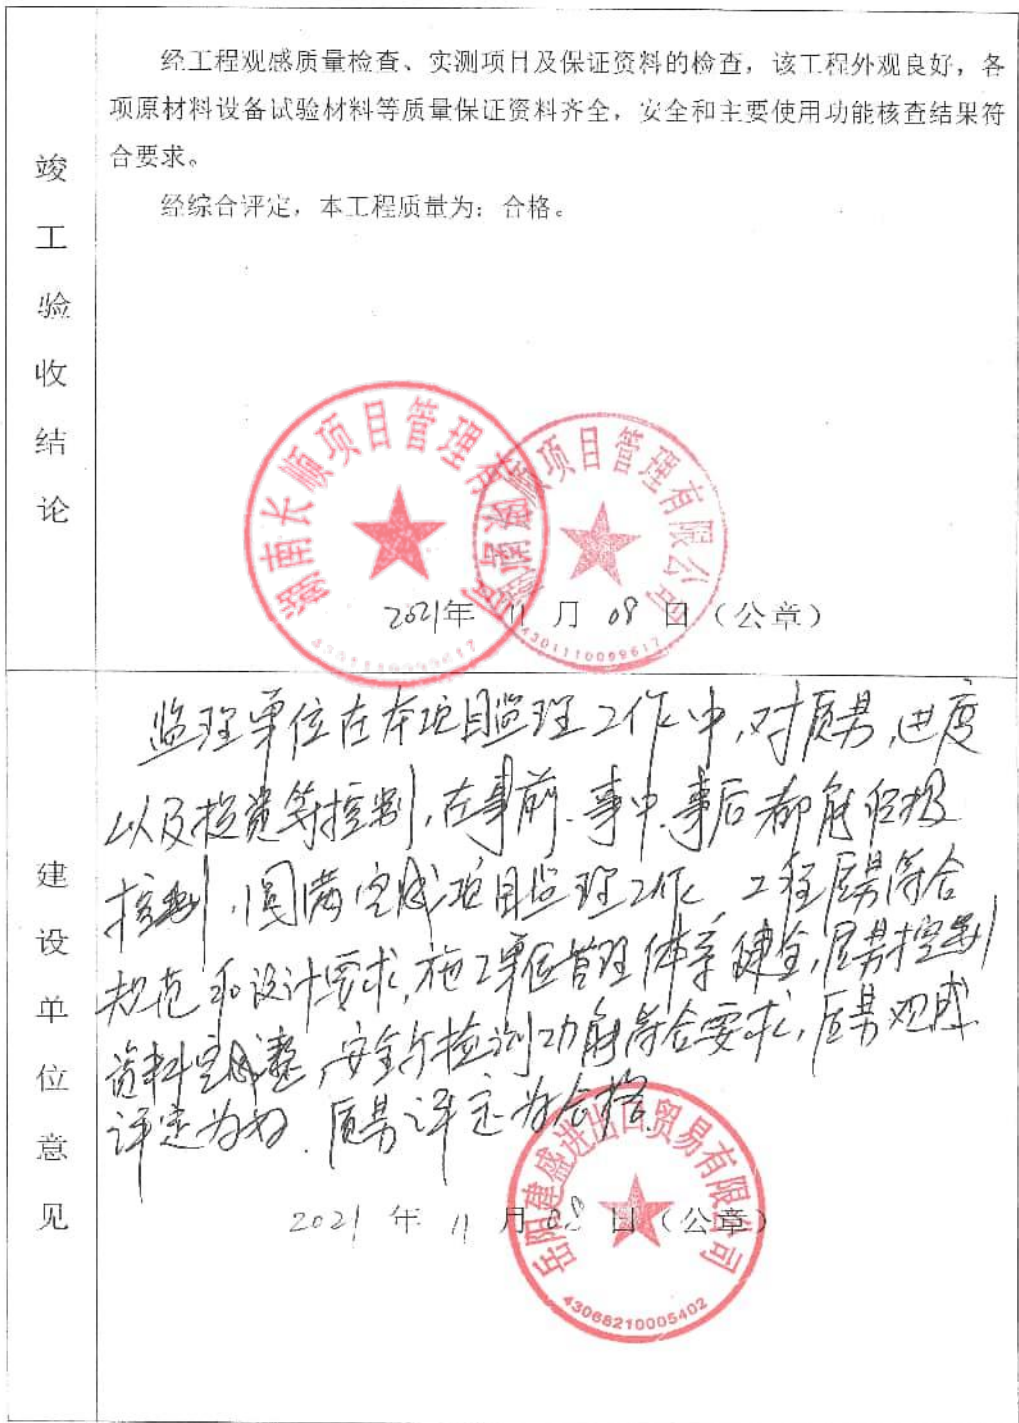 竣工验收结论
经工程观感质量检查、实测项目及保证资料的检查，该工程外观良好，各
项原材料设备试验材料等质量保证资料齐全，安全和主要使用功能核查结果符
合要求。
经综合评定，本工程质量为：合格。
湖南长顺项目管理有限公司
项目管理有限公司
4301110099617
2021年 11 月 08 日（公章）
建设单位意见
监理单位在本项目监理工作中,对质量,进度
以及投资等控制,在事前、事中、事后都能积极
控制,圆满完成项目监理工作,工程质量符合
规范和设计要求,施工单位管理体系健全,质量控制
资料完整,安全与检测功能符合要求,质量观感
评定为好.质量评定为合格.
岳阳建盛进出口贸易有限公司
43068210005402
2021 年 11 月 08 日（公章）